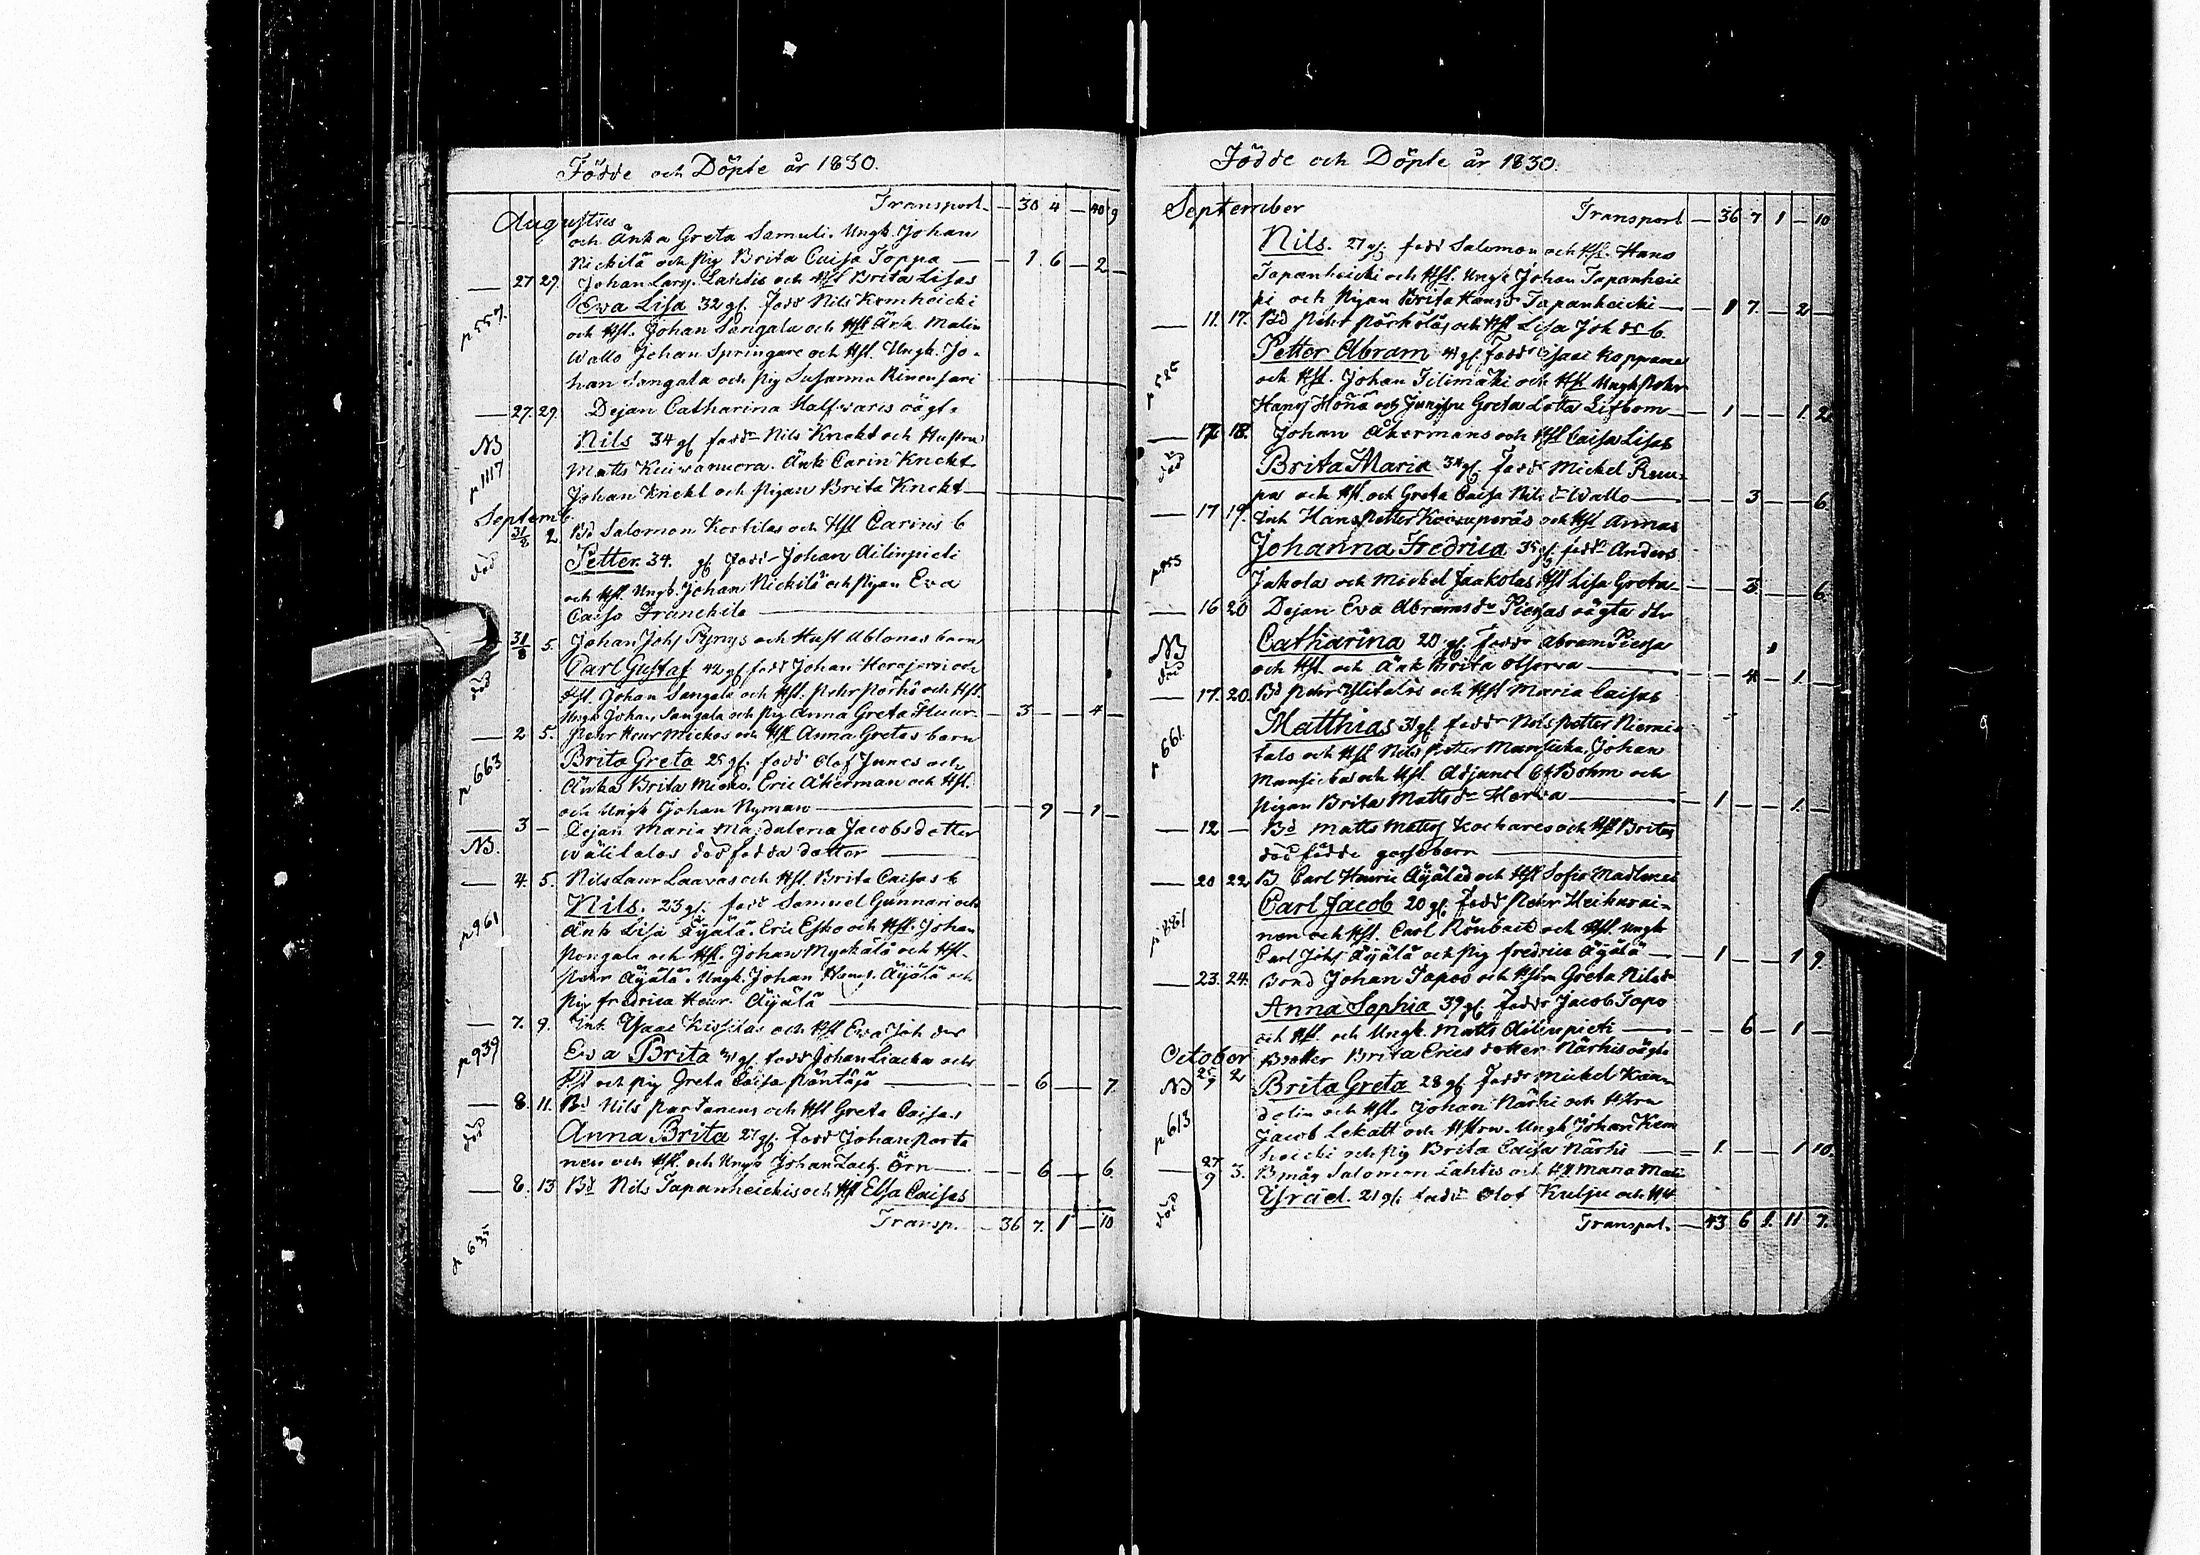 Födde och Döpte år 1830.
Transport — 30 4 — 40 9
Augustus
och Änka Greta Samuli. Ungk. Johan
Nickilä och Pig Brita Caisa Toppa — — 1 6 — 2 —
27 29. Johan Lars. Lahtis och Hst Brita Lisas
p 557. Ewa Lisa 32 gl. fadd Nils Kemheicki
och Hst. Johan Sangala och Hst Änk. Malin
Wallo Johan Springare och Hst. Ungk. Jo-
han Sangala och Pig Susanna
27. 29. Dejan Catharina Halfwaris oägt.
NB Nils 34 gl fadd Nils Knekt och Hustru
p 1117 Matts Kuiwanuora. Änk Carin Knekt
Johan Knekt och Pigan Brita Knekt
Septemb.
31/8 2 Bd Salomon Kortilas och Hst Carins b
död Petter. 34. gl fadd Johan Ailinpieti
och Hst. Ungk. Johan Nickilä och Pigan Eva
Caisa Franckila
31/8 5. Johan Johs och Hust Ablonas barn
död Carl Gustaf 42 gl fadd Johan Herajervi och
Hst. Johan Sangala och Hst. Pehr Pörhö och Hst.
Ungk Johan Sangala och Pig Anna Greta — 3 — — 4 —
2 5. Pehr Henr Mickos och Hst Anna Gretas barn
p 663 Brita Greta 25 gl. fadd Olof Junes och
Änka Brita Micko. Eric Åkerman och Hst.
och Ungk Johan Nyman — 9 — 1 —
3 — Dejan Maria Magdalena Jacobsdotter
NB. Wälitalos död födda dotter
4. 5. Nils Laur Laavas och Hst. Brita Caisas b
p 961 Nils. 23 gl. fadd Samuel Gunnari och
Änk Lisa Äijälä. Eric Esko och Hst. Johan
Pongala och Hst. Johan Myckälä och Hst.
Pehr Äijälä. Ungk. Johan Hans. Äijälä och
Pig fredrica Henr. Äijälä
7. 9. Inh. Ysaac Kivilas och Hst Ewa Joh der
p 939 Eva Brita 31 gl. fadd Johan Liacka och
Hst och Pig Greta Caisa Päntäjä — — 6 — — 7.
8. 11. Bd Nils Partanens och Hst Greta Caisas
död Anna Brita 27 gl. Fadd Johan Porta
nen och Hst. och Ungk Johan Zach. Örn — — 6 — — 6.
8. 13 Bd Nils Tapanheickis och Hst Elsa Caisas
p 635 Transp. — 36 7. 1 — 10
Födde och Döpte år 1830.
September Transport — 36 7 1 — 10
Nils. 27 gl. fadd Salomon och Hst. Hans
Tapanheicki och Hst. Ungk Johan Tapanheic
ki och Pigan Brita Hansdr Tapanheicki — — 1 7 — 2 —
11. 17. Bd Pehr Pörhöläs och Hst Lisa Joh dr b.
p 525 Petter Abram 41 gl. fadd Isaac Koppana
och Hst. Johan Ilimäki och Hst Ungk Pehr
Hans Honä och Jungfru Greta Lotta Lifbom — 1 — — 1. 2
17. 18. Johan Åkermans och Hst Caisa Lisas
död Brita Maria 34 gl. fadd Mickel Ruu-
pa och Hst. och Greta Caisa Nils dr Wallo — — 3 — — 6.
17 19. Inh Hans Petter och Hst Annas
p 455 Johanna Fredrica 35 gl. fadd Anders
Jakola och Mickel Jaakolas Hst Lisa Greta — — 3. — — 6.
16 20 Dejan Eva Abramsdr Piessas oägta dtr
NB Catharina 20 gl. fadd Abram Piessa
död och Hst. och Änk Brita — — 4. — 1. —
17. 20. Bd Pehr Ylitalos och Hst Maria Caisas
p 661. Matthias 31 gl. fadd Nils Petter Niemi-
talo och Hst Nils Petter Mansicka, Johan
Mansicka och Hst. Adjunct Böhm och
Pigan Brita Mattsdr Herva — 1 — — 1. —
12 — Bd Matts Matts Kochares och Hst Britas
död födde gossebarn
20 22. B Carl Henric Äijäläs och Hst Sofia Madlenas
p 881 Carl Jacob 20 gl. fadd Pehr Heikurai-
nen och Hst. Carl Rönback och Hst Ungk
Carl Johs Äijälä och Pig fredrica Äijälä — 1 — — 1 9.
23. 24. Bond Johan Tapos och Hstru Greta Nilsdr
Anna Sophia 39 gl. fadd Jacob Tapo
och Hst. och Ungk. Matts Ailinpieti — — 6 — 1 —
October
25/9 2 Bdotter Brita Erics dotter Närhis oägta
NB Brita Greta 28 gl. fadd Mickel Kan-
p 613 dolin och Hst. Johan Närhi och Hstru
Jacob Lekatt och Hstru. Ungk Johan Kem
heicki och Pig Brita Caisa Närhi — 1. — — 1 10.
27/9 3. Bmåg Salomon Lahtis och Hst Maria
död Ysrael. 21 gl. fadd Olof Kulju och Hst
Transport. — 43 6 1. 11 7.